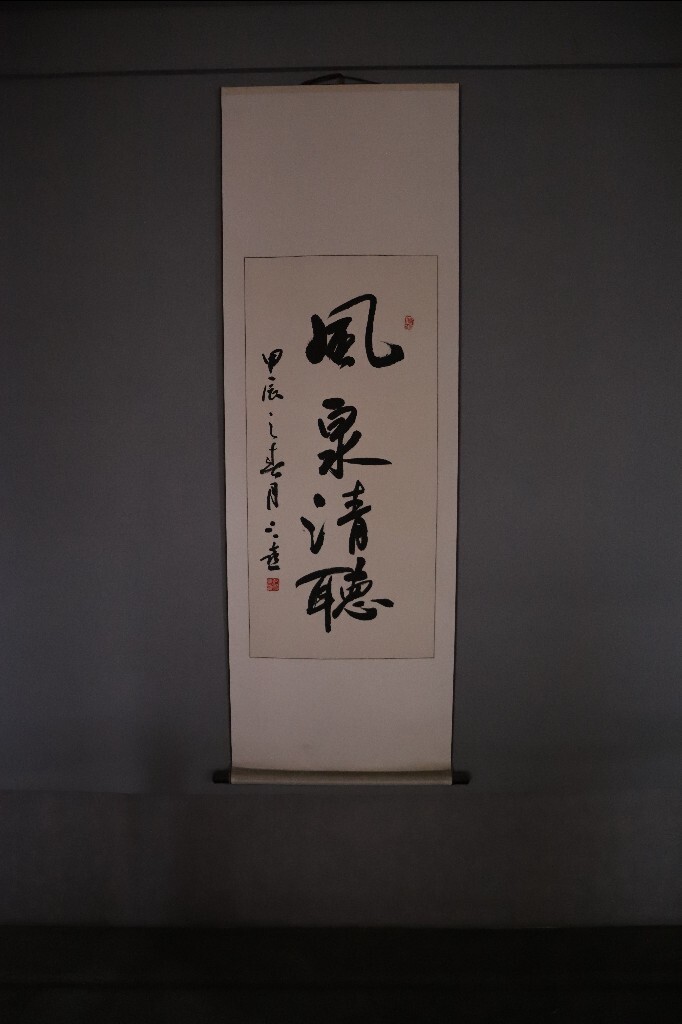 風泉清聽
甲辰之春月